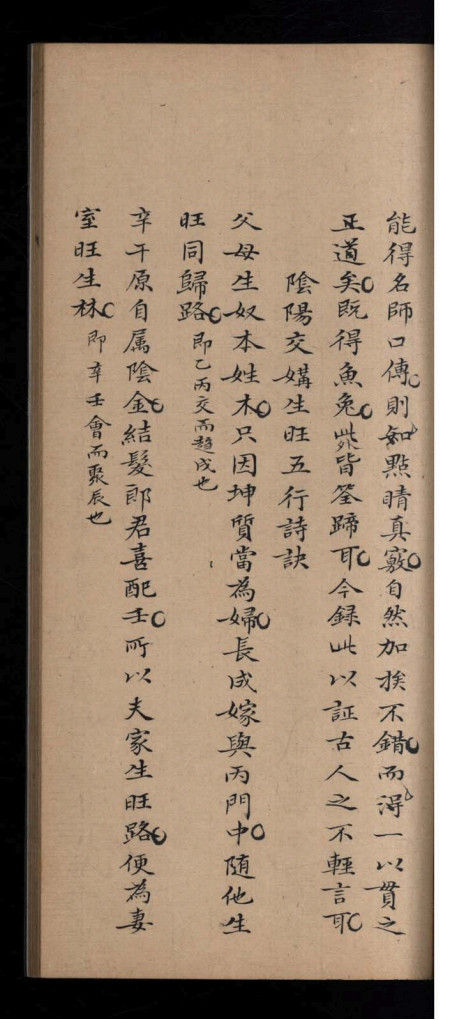 能得名師口傳則如點睛真竅自然加挨不錯而得一以貫之
正道矣既得魚兔此皆筌蹄耳今録此以証古人之不輕言耳
陰陽交媾生旺五行詩訣
父母生奴本姓木只因坤質當為婦長成嫁與丙門中隨他生
旺同歸路即乙丙交而趨戌也
辛干原自属陰金結髮郎君喜配壬所以夫家生旺路便為妻
室旺生林即辛壬會而聚辰也